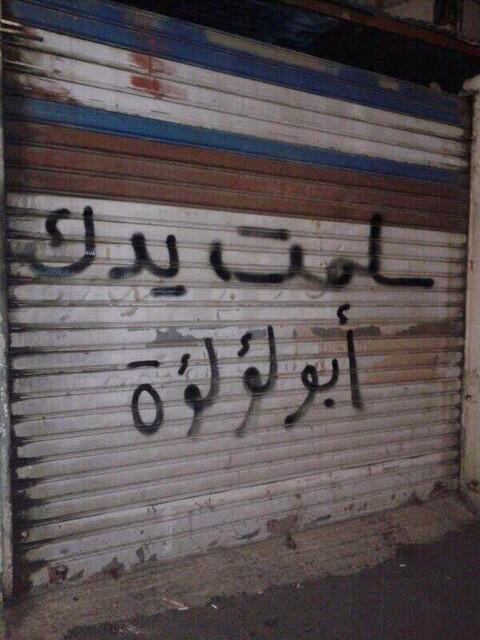 سلمت يدك
أبو لؤلؤة